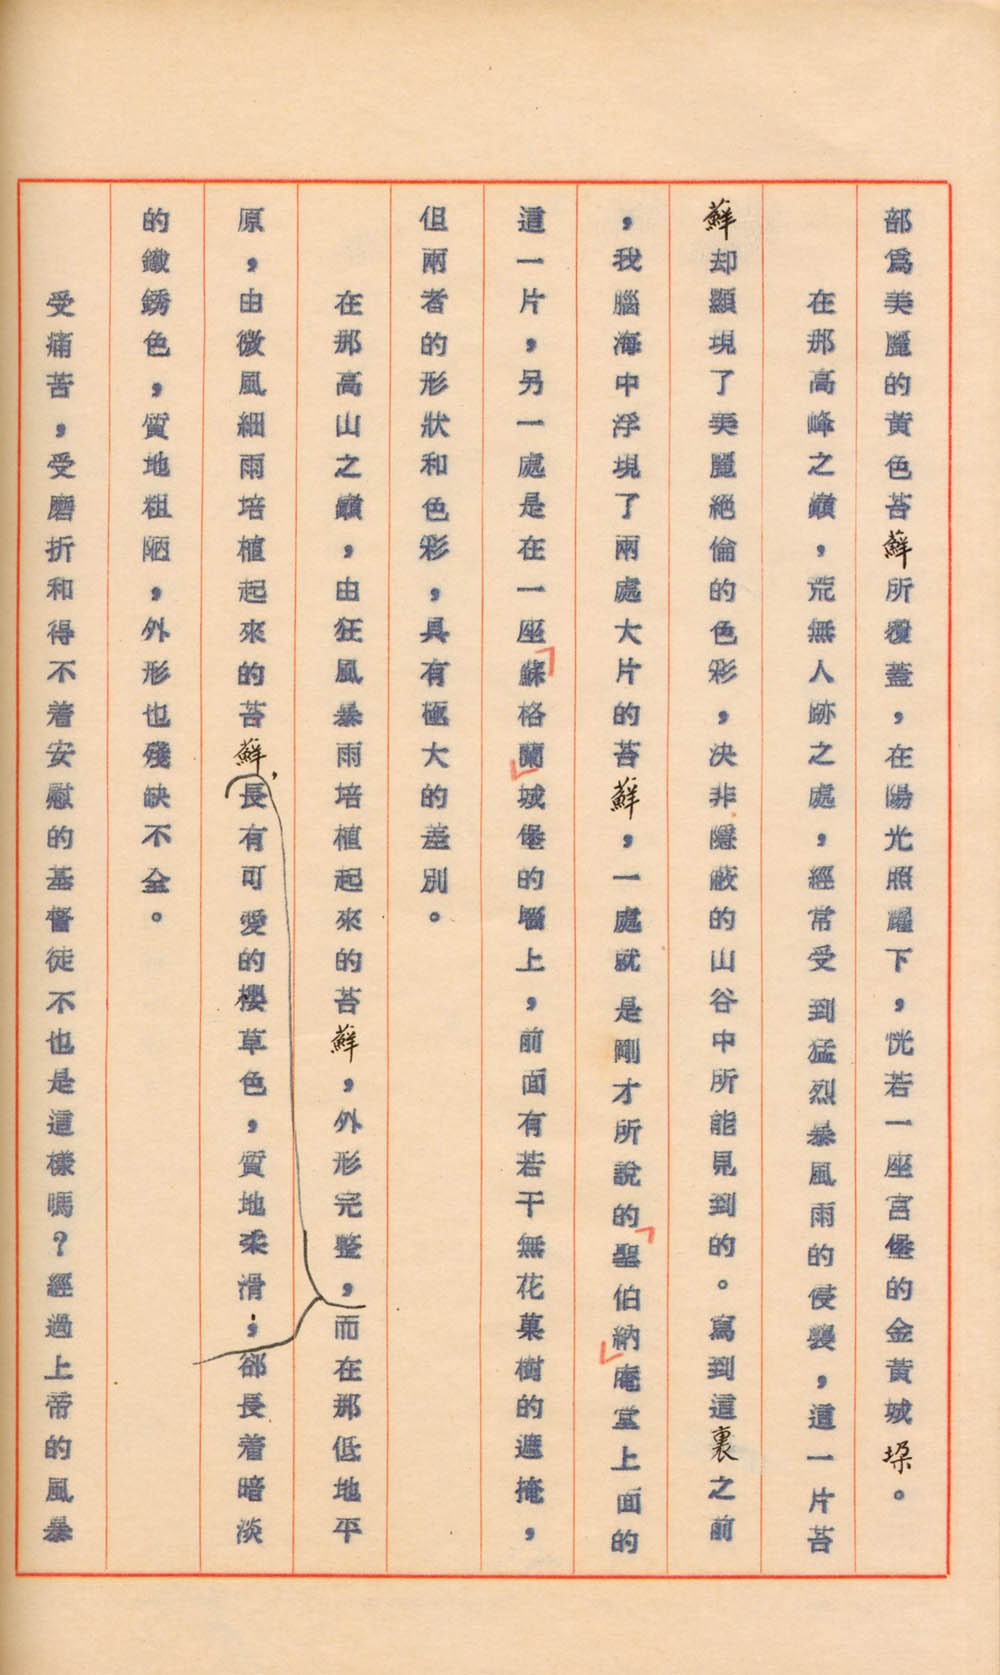 部爲美麗的黃色苔蘚所覆蓋，在陽光照耀下，恍若一座宮堡的金黃城垛。
在那高峰之巔，荒無人跡之處，經常受到猛烈暴風雨的侵襲，這一片苔
蘚却顯現了美麗絕倫的色彩，決非隱蔽的山谷中所能見到的。寫到這裏之前
，我腦海中浮現了兩處大片的苔蘚，一處就是剛才所說的「聖伯納」庵堂上面的
這一片，另一處是在一座「蘇格蘭」城堡的墻上，前面有若干無花菓樹的遮掩，
但兩者的形狀和色彩，具有極大的差別。
在那高山之巔，由狂風暴雨培植起來的苔蘚，外形完整，而在那低地平
原，由微風細雨培植起來的苔蘚，長有可愛的櫻草色，質地柔滑；郤長着暗淡
的鐵銹色，質地粗陋，外形也殘缺不全。
受痛苦，受磨折和得不着安慰的基督徒不也是這樣嗎？經過上帝的風暴